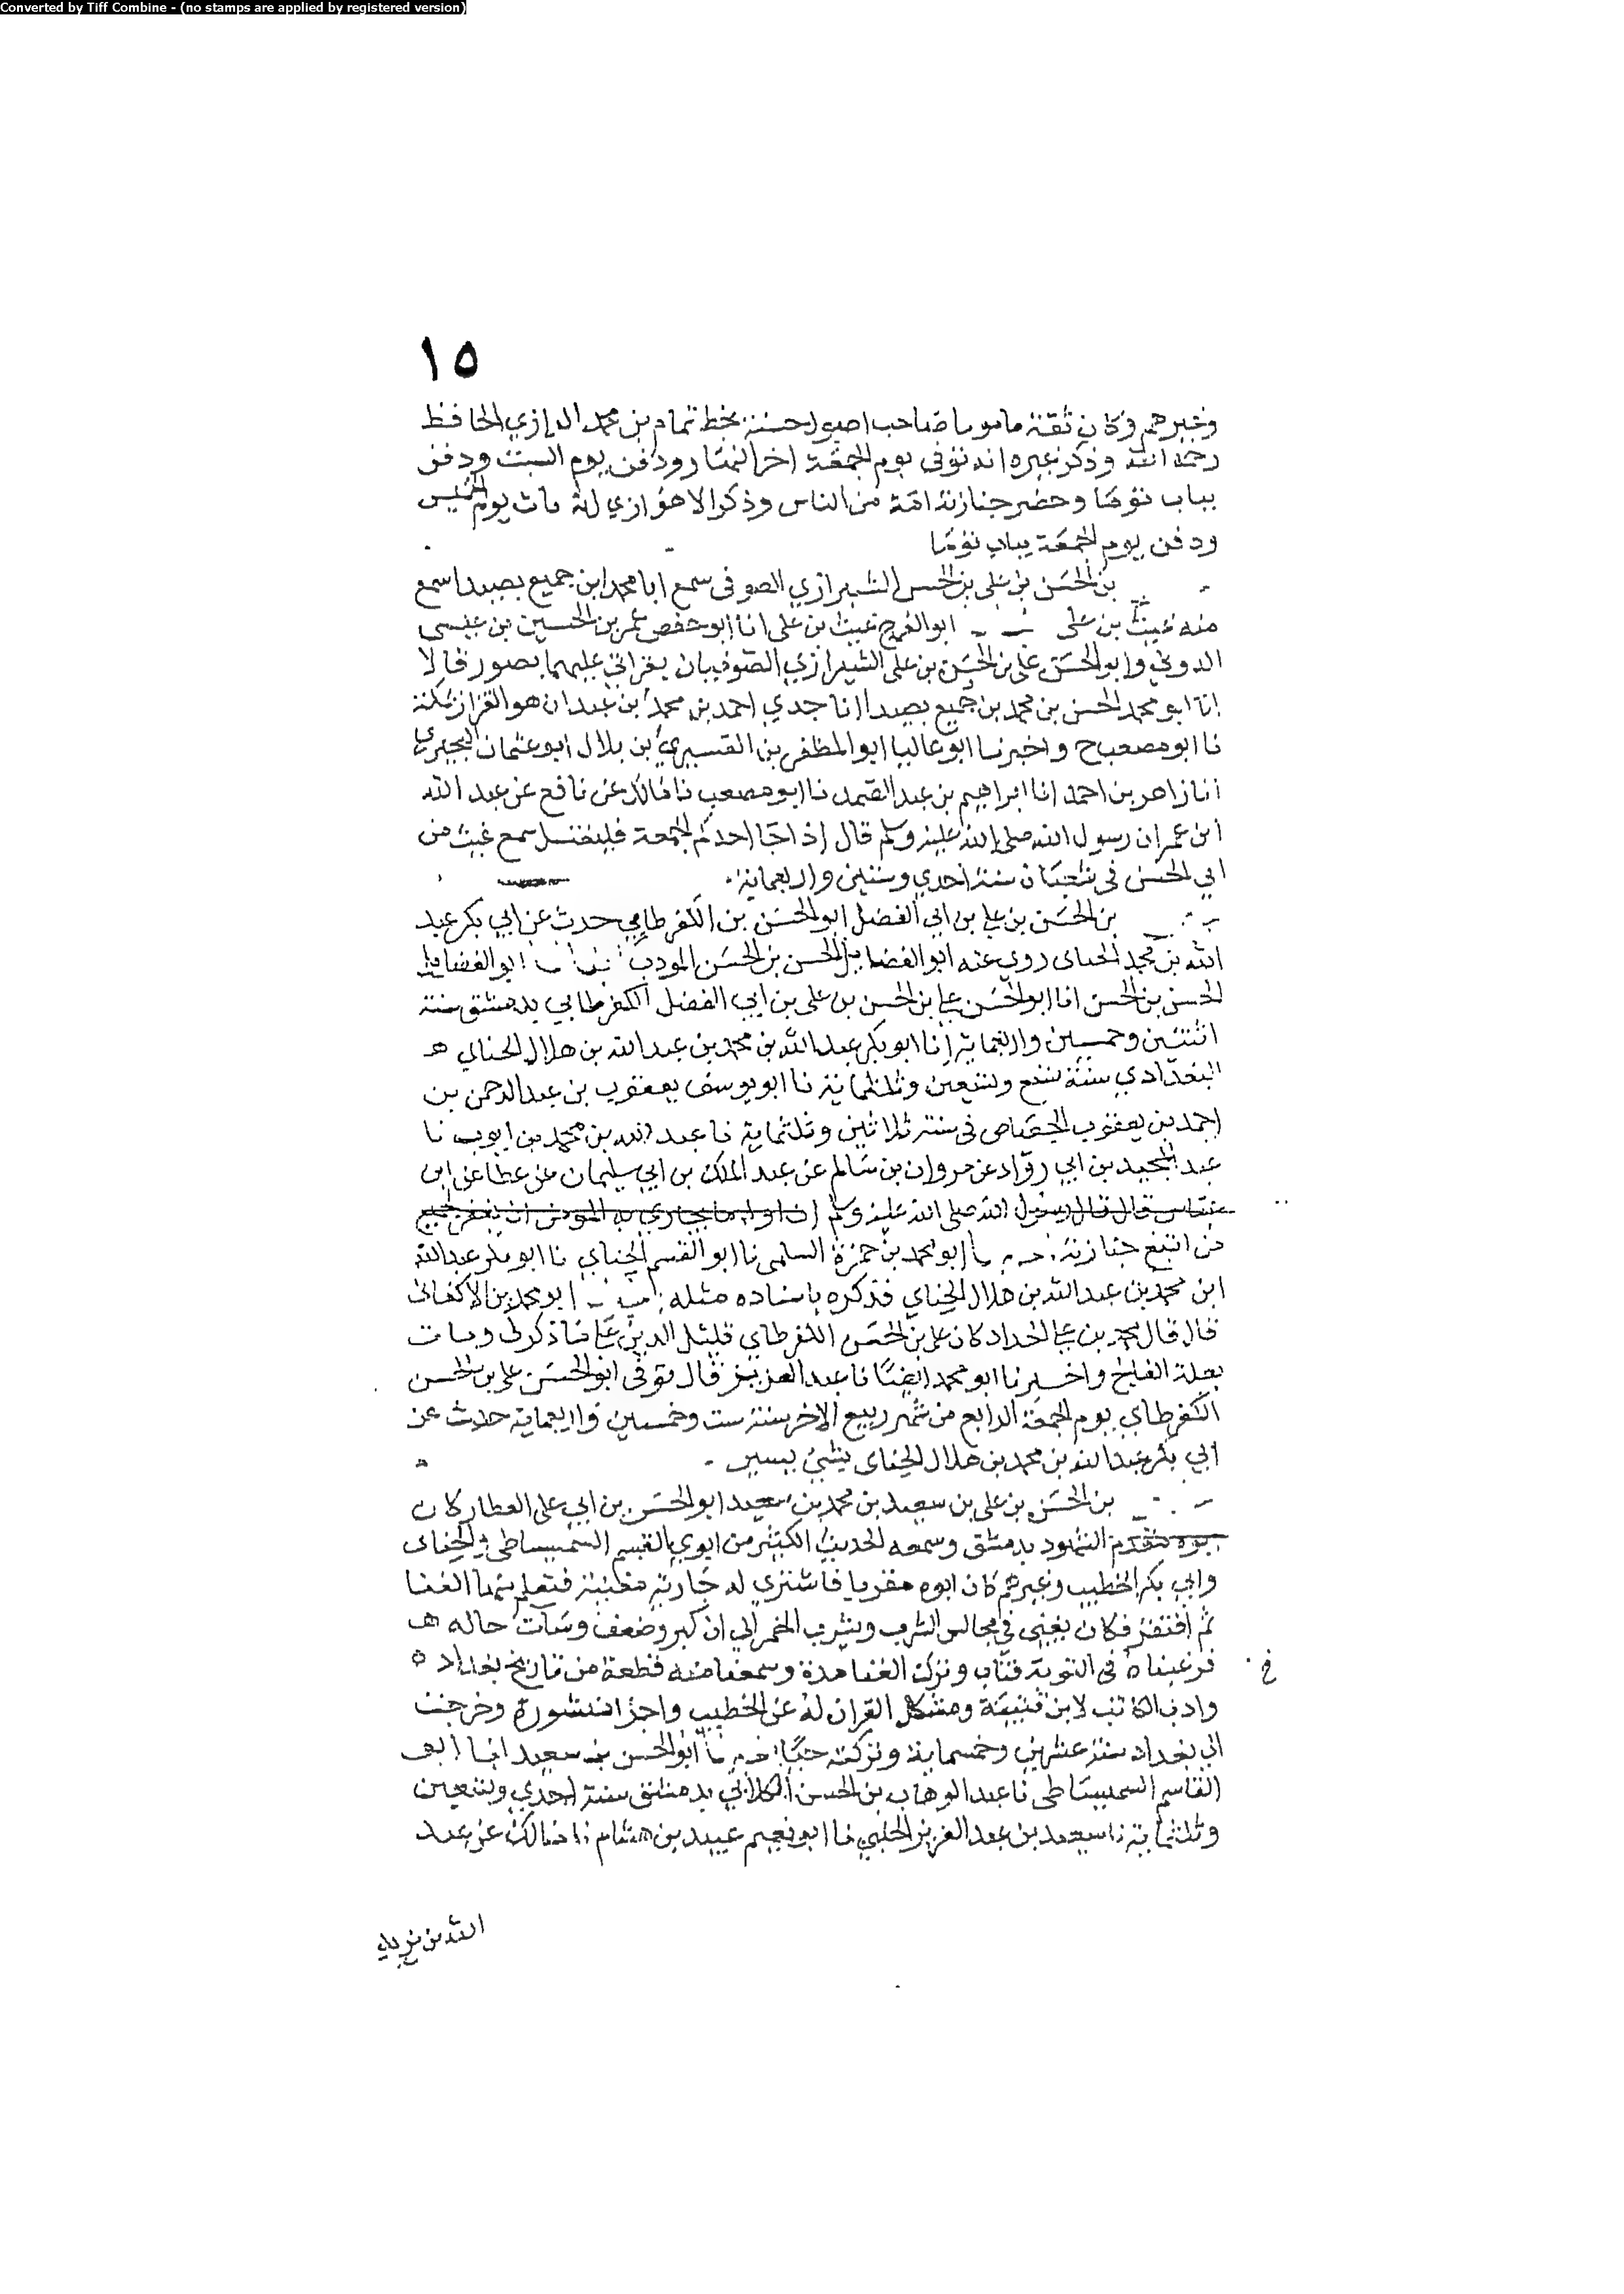 Converted by Tiff Combine - (no stamps are applied by registered version)
١٥
وغيرهم وكان ثقة مامونا صاحب اصول حسنة بخط تمام بن محمد الرازي الحافظ
رحمه الله وذكر غيره انه توفى يوم الجمعة اخر النهار ودفن يوم السبت ودفن
بباب توما وحضر جنازته امة من الناس وذكر الاهوازي انه مات يوم الخميس
ودفن يوم الجمعة بباب توما
بن الحسن بن على بن الحسن الشيرازي الصوفى سمع ابا محمد ابن جميع بصيدا سمع
منه غيث بن على ابو الفرج غيث بن على انا ابو حفص عمر بن الحسين بن عيسى
الدوني وابو الحسن على بن الحسن بن على الشيرازي الصوفيان بقراتي عليهما بصور قالا
انا ابو محمد الحسن بن محمد بن جميع بصيدا انا جدي احمد بن محمد بن عبدان هو القزاز بمكة
نا ابو مصعب ح واخبرنا ابو غالب ابو المظفر بن القسيري بن بلال ابو عثمان البحيري
انا زاهر بن احمد انا ابراهيم بن عبد الصمد نا ابو مصعب نا مالك عن نافع عن عبد الله
ابن عمر ان رسول الله صلى الله عليه وسلم قال إذا جا احدكم الجمعة فليغتسل سمع غيث من
ابي الحسن في شعبان سنة احدي وستين واربعماية
بن الحسن بن علي بن ابي الفضل ابو الحسن بن الكفرطابي حدث عن ابي بكر عبد
الله بن محمد الحناى روي عنه ابو الفضايل الحسن بن الحسن المودب ابو الفضايل
الحسن بن الحسن انا ابو الحسن علي بن الحسن بن على بن ابي الفضل الكفرطابي بدمشق سنة
اثنتين وخمسين واربعماية انا ابو بكر عبد الله بن محمد بن عبد الله بن هلال الحناي
البغدادي سنة تسع وتسعين وثلثماية نا ابو يوسف يعقوب بن عبد الرحمن بن
احمد بن يعقوب الجصاص في سنة ثلاثين وثلثماية نا عبد الله بن محمد بن ايوب نا
عبد المجيد بن ابي روّاد عن مروان بن سالم عن عبد الملك بن ابي سليمان عن عطا عن ابن
عباس قال قال رسول الله صلى الله عليه وسلم إن اول ما يجازي به المومن ان يغفر لجميع
من اتبع جنازته ابو محمد بن حمزة السلمى نا ابو القسم الحناي نا ابو بكر عبد الله
ابن محمد بن عبد الله بن هلال الحناي فذكره باسناده مثله ابو محمد بن الاكفانى
قال قال محمد بن علي الحداد كان على بن الحسن الكفرطاي قليل الدين على ما ذكر لى ومات
بعلة الفالج واخبرنا ابو محمد ايضا نا عبد العزيز قال توفى ابو الحسن على بن الحسن
الكفرطابي يوم الجمعة الرابع من شهر ربيع الاخر سنة ست وخمسين واربعماية حدث عن
ابي بكر عبد الله بن محمد بن هلال الحناى بشئ يسير
بن الحسن بن على بن سعيد بن محمد بن سعيد ابو الحسن بن ابي على العطار كان
ابوه مقدم الشهود بدمشق وسمعه الحديث الكثير من ابوي القسم السميساطى والحناى
وابي بكر الخطيب وغيرهم كان ابوه مقريا فاشتري له جارية مغنية فتعلم منها الغنا
ثم افتقر فكان يغني في مجالس الشرب ويشرب الخمر إلي ان كبر وضعف وسات حاله
فرغبناه فى التوبة فتاب وترك الغنا مدة وسمعنا منه قطعة من تاريخ بغداد
وادب الكاتب لابن قتيبة ومشكل القران له عن الخطيب واجزا منثورة وخرجت
الي بغداد سنة عشرين وخمسماية وتركته حيا ابو الحسن بن سعيد انا ابو
القاسم السميساطى نا عبد الوهاب بن الحسن الكلابي بدمشق سنة احدي وتسعين
وثلثماية نا سعيد بن عبد العزيز الحلبي نا ابو نعيم عبيد بن هشام نا مالك عن عبد
الله بن يزيد